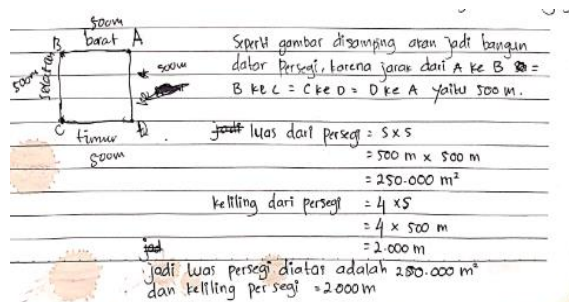 500m
B barat A
500m
selatan
500m
C timur D
500m
Seperti gambar disamping akan jadi bangun
datar persegi, karena jarak dari A ke B =
B ke C = C ke D = D ke A yaitu 500 m.
luas dari persegi = S x S
= 500 m x 500 m
= 250.000 m²
keliling dari persegi = 4 x S
= 4 x 500 m
= 2.000 m
jadi luas persegi diatas adalah 250.000 m²
dan keliling persegi = 2.000 m